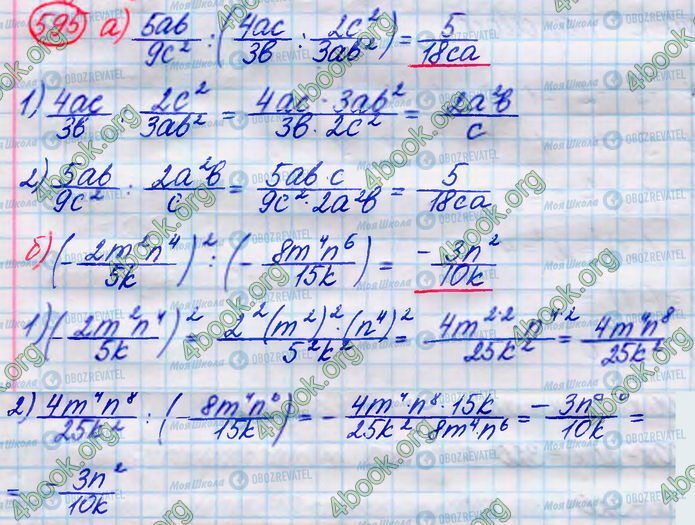 595 а) 5ab/9c² : (4ac/3b : 2c²/3ab²) = 5/18ca
1) 4ac/3b : 2c²/3ab² = 4ac · 3ab²/3b · 2c² = 2a²b/c
2) 5ab/9c² : 2a²b/c = 5ab · c/9c² · 2a²b = 5/18ca
б) (- 2m²n⁴/5k)² : (- 8m⁴n⁶/15k) = - 3n²/10k
1) (- 2m²n⁴/5k)² = 2²(m²)² · (n⁴)²/5²k² = 4m²·² n⁴·²/25k² = 4m⁴n⁸/25k²
2) 4m⁴n⁸/25k² : (- 8m⁴n⁶/15k) = - 4m⁴ · n⁸ · 15k/25k² · 8m⁴n⁶ = - 3n⁸⁻⁶/10k =
= - 3n²/10k